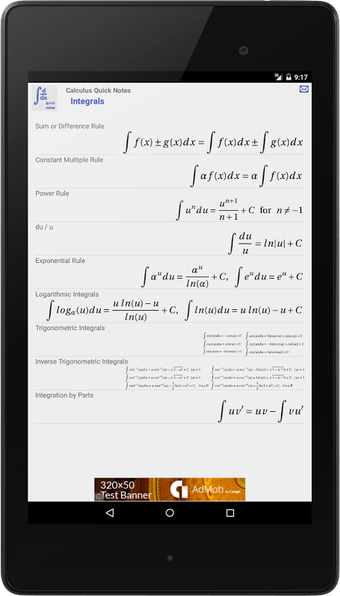 9:17
∫ d/dx quick notes
Calculus Quick Notes
Integrals
Sum or Difference Rule
∫ f(x) ± g(x)dx = ∫ f(x)dx ± ∫ g(x)dx
Constant Multiple Rule
∫ αf(x)dx = α ∫ f(x)dx
Power Rule
∫ uⁿdu = uⁿ⁺¹/n+1 + C for n ≠ −1
du / u
∫ du/u = ln|u| + C
Exponential Rule
∫ αᵘdu = αᵘ/ln(α) + C, ∫ eᵘdu = eᵘ + C
Logarithmic Integrals
∫ logₐ(u)du = u ln(u) − u/ln(u) + C, ∫ ln(u)du = u ln(u) − u + C
Trigonometric Integrals
Inverse Trigonometric Integrals
Integration by Parts
∫ uv′ = uv − ∫ vu′
320x50
Test Banner
AdMob by Google